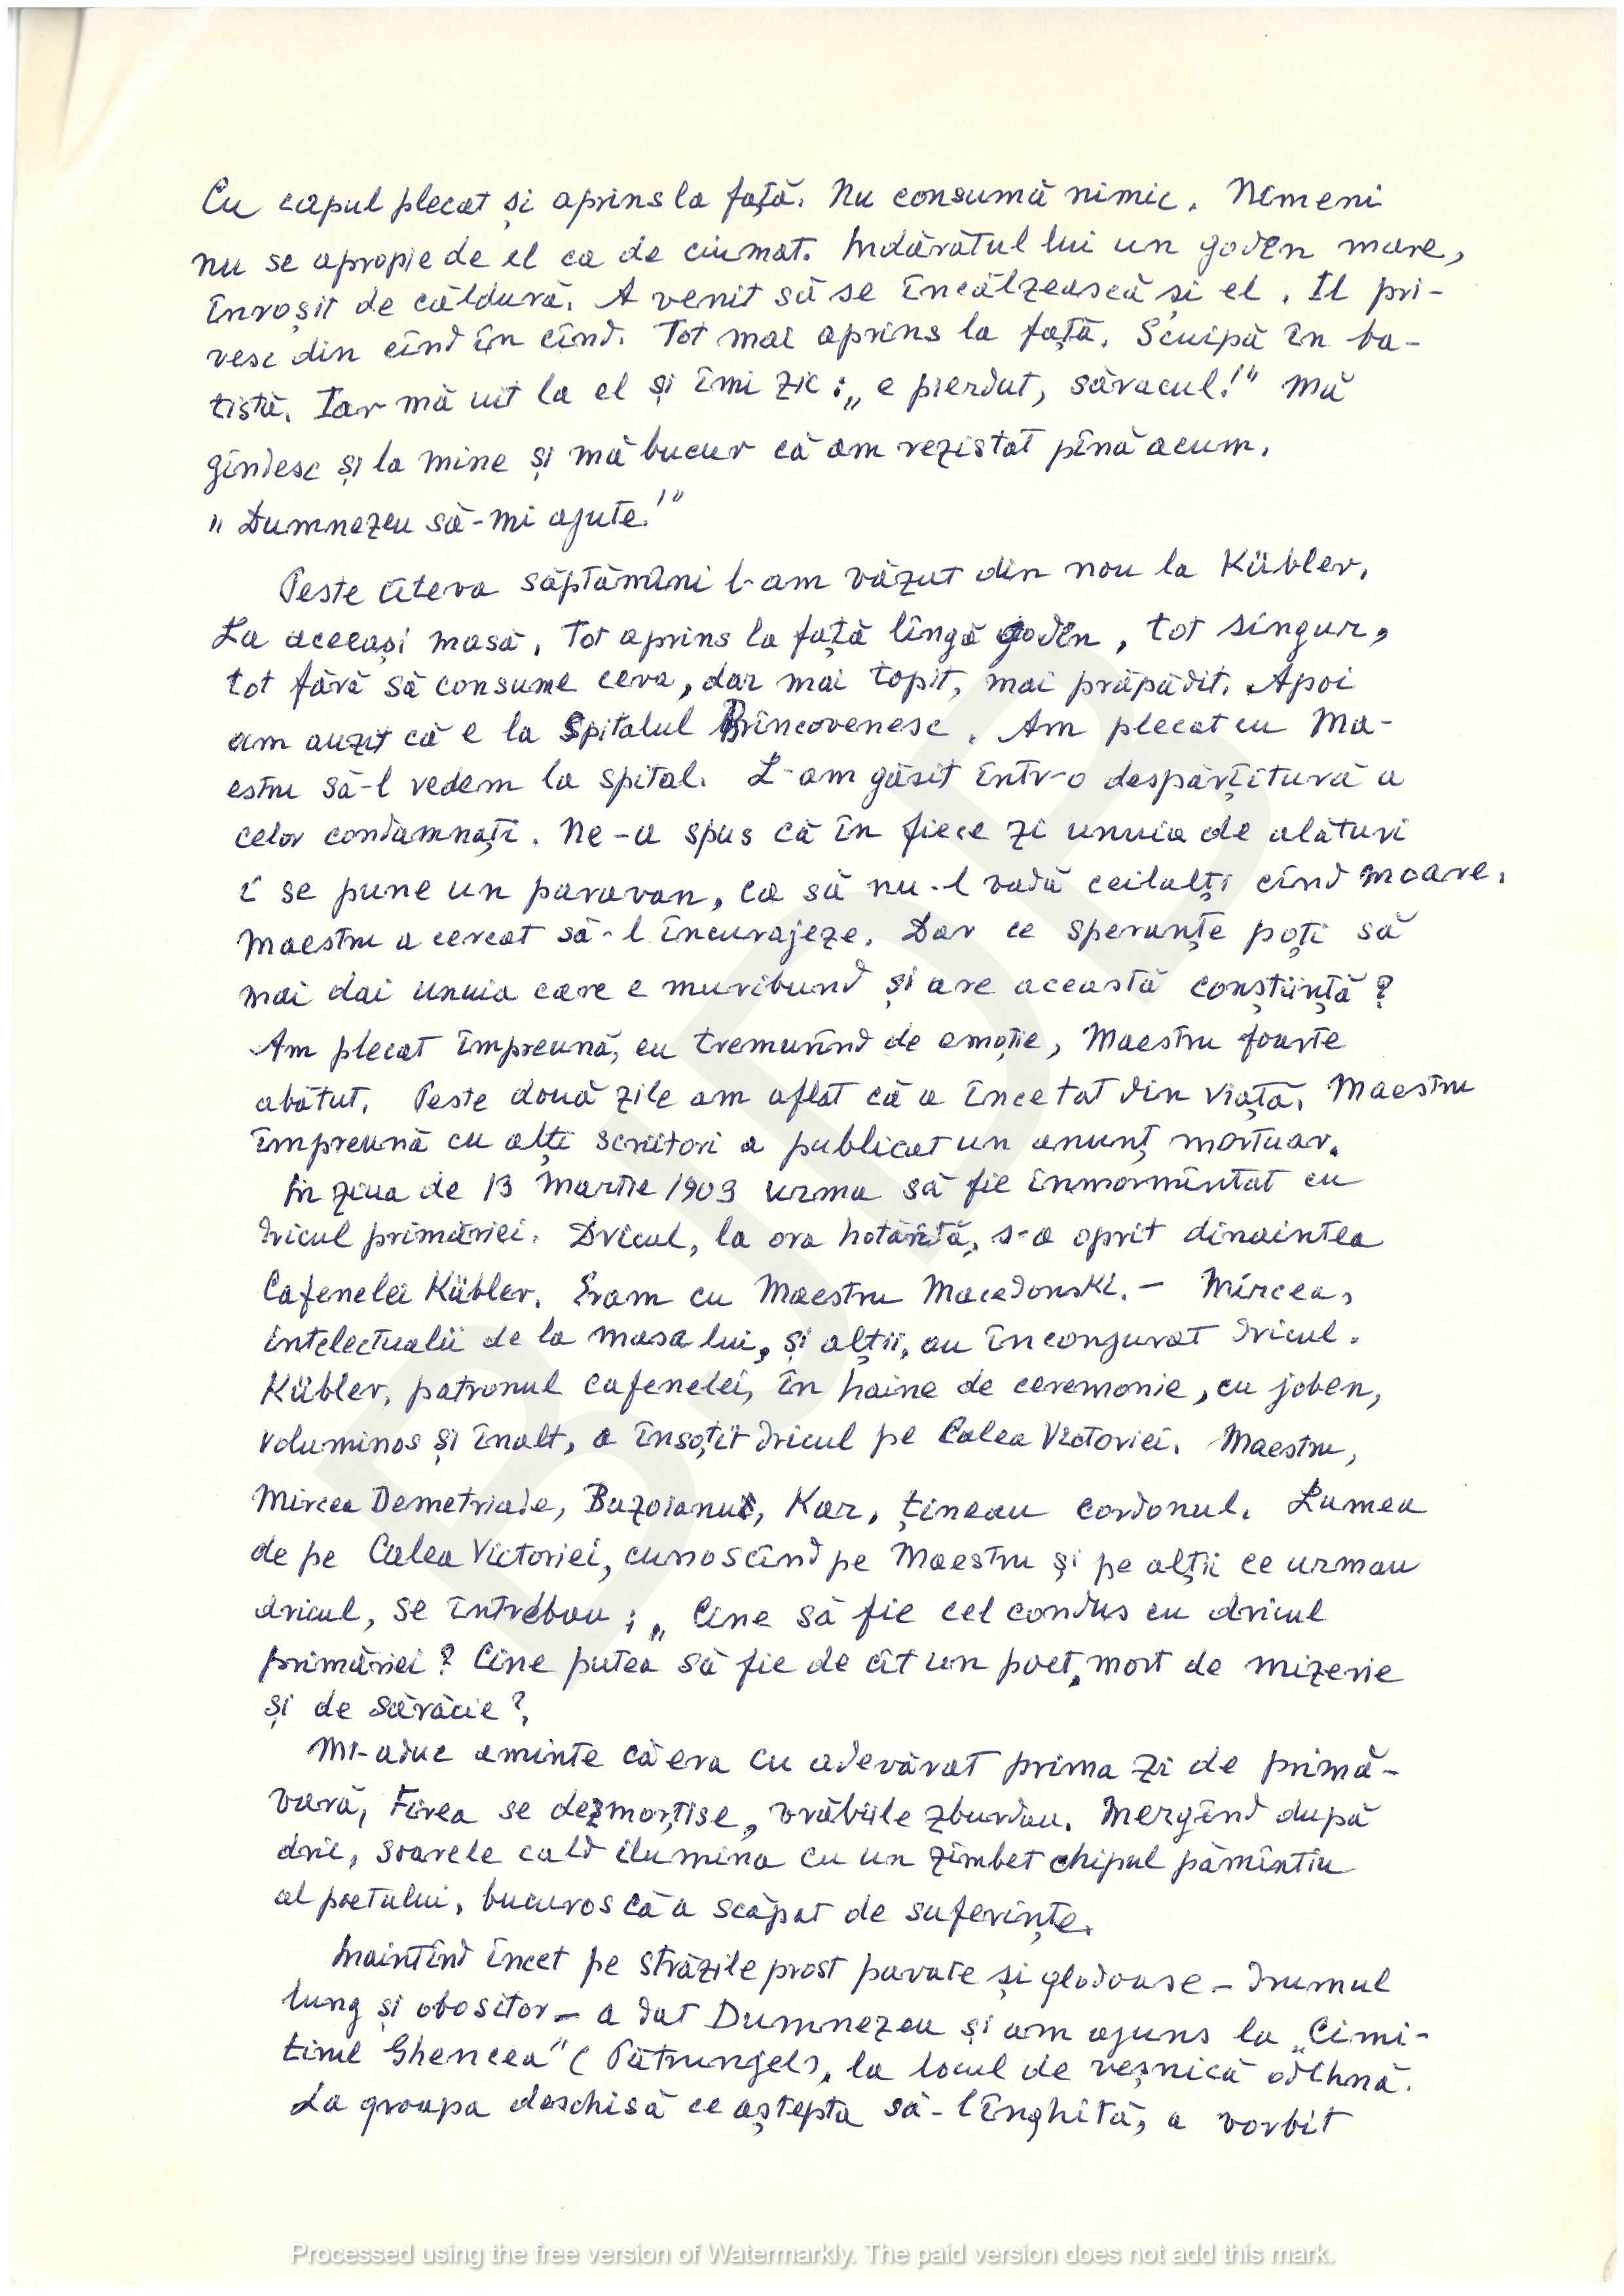 Cu capul plecat și aprins la față. Nu consumă nimic. Nimeni
nu se apropie de el ca de ciumat. Indărătul lui un godin mare,
înroșit de căldură. A venit să se încălzească și el. Il pri-
vesc din cînd în cînd. Tot mai aprins la față. Scuipă în ba-
tistă. Iar mă uit la el și îmi zic: „e pierdut, săracul!" Mă
gîndesc și la mine și mă bucur că am rezistat pînă acum.
„Dumnezeu să-mi ajute!"
Peste cîteva săptămîni l-am văzut din nou la Kübler.
La aceeași masă. Tot aprins la față lîngă godin, tot singur,
tot fără să consume ceva, dar mai topit, mai prăpădit. Apoi
am auzit că e la Spitalul Brîncovenesc. Am plecat cu Ma-
estru să-l vedem la spital. L-am găsit într-o despărțitură a
celor condamnați. Ne-a spus că în fiece zi unuia de alături
i se pune un paravan, ca să nu-l vadă ceilalți cînd moare.
Maestru a cercat să-l încurajeze. Dar ce speranțe poți să
mai dai unuia care e muribund și are această conștiință?
Am plecat împreună, eu tremurînd de emoție, Maestru foarte
abătut. Peste două zile am aflat că a încetat din viață. Maestru
împreună cu alți scriitori a publicat un anunț mortuar.
In ziua de 13 Martie 1909 urma să fie înmormîntat cu
dricul primăriei. Dricul, la ora hotărîtă, s-a oprit dinaintea
Cafenelei Kübler. Eram cu Maestru Macedonski. - Mircea,
intelectualii de la masa lui, și alții, au înconjurat dricul.
Kübler, patronul cafenelei, în haine de ceremonie, cu joben,
voluminos și înalt, a însoțit dricul pe Calea Victoriei. Maestru,
Mircea Demetriade, Bazoianu, Kar, țineau cordonul. Lumea
de pe Calea Victoriei, cunoscînd pe Maestru și pe alții ce urmau
dricul, se întrebau: „Cine să fie cel condus cu dricul
primăriei? Cine putea să fie de cît un poet, mort de mizerie
și de sărăcie?
Mi-aduc aminte că era cu adevărat prima zi de primă-
vară, Firea se dezmorțise, vrăbiile zburdau. Mergînd după
dric, soarele cald ilumina cu un zîmbet chipul pămîntiu
al poetului, bucuros că a scăpat de suferințe.
Inaintînd încet pe străzile prost pavate și glodoase - drumul
lung și obositor - a dat Dumnezeu și am ajuns la „Cimi-
tirul Ghencea" (Pătrunjel), la locul de veșnică odihnă.
La groapa deschisă ce aștepta să-l înghită, a vorbit
BJDB
Processed using the free version of Watermarkly. The paid version does not add this mark.